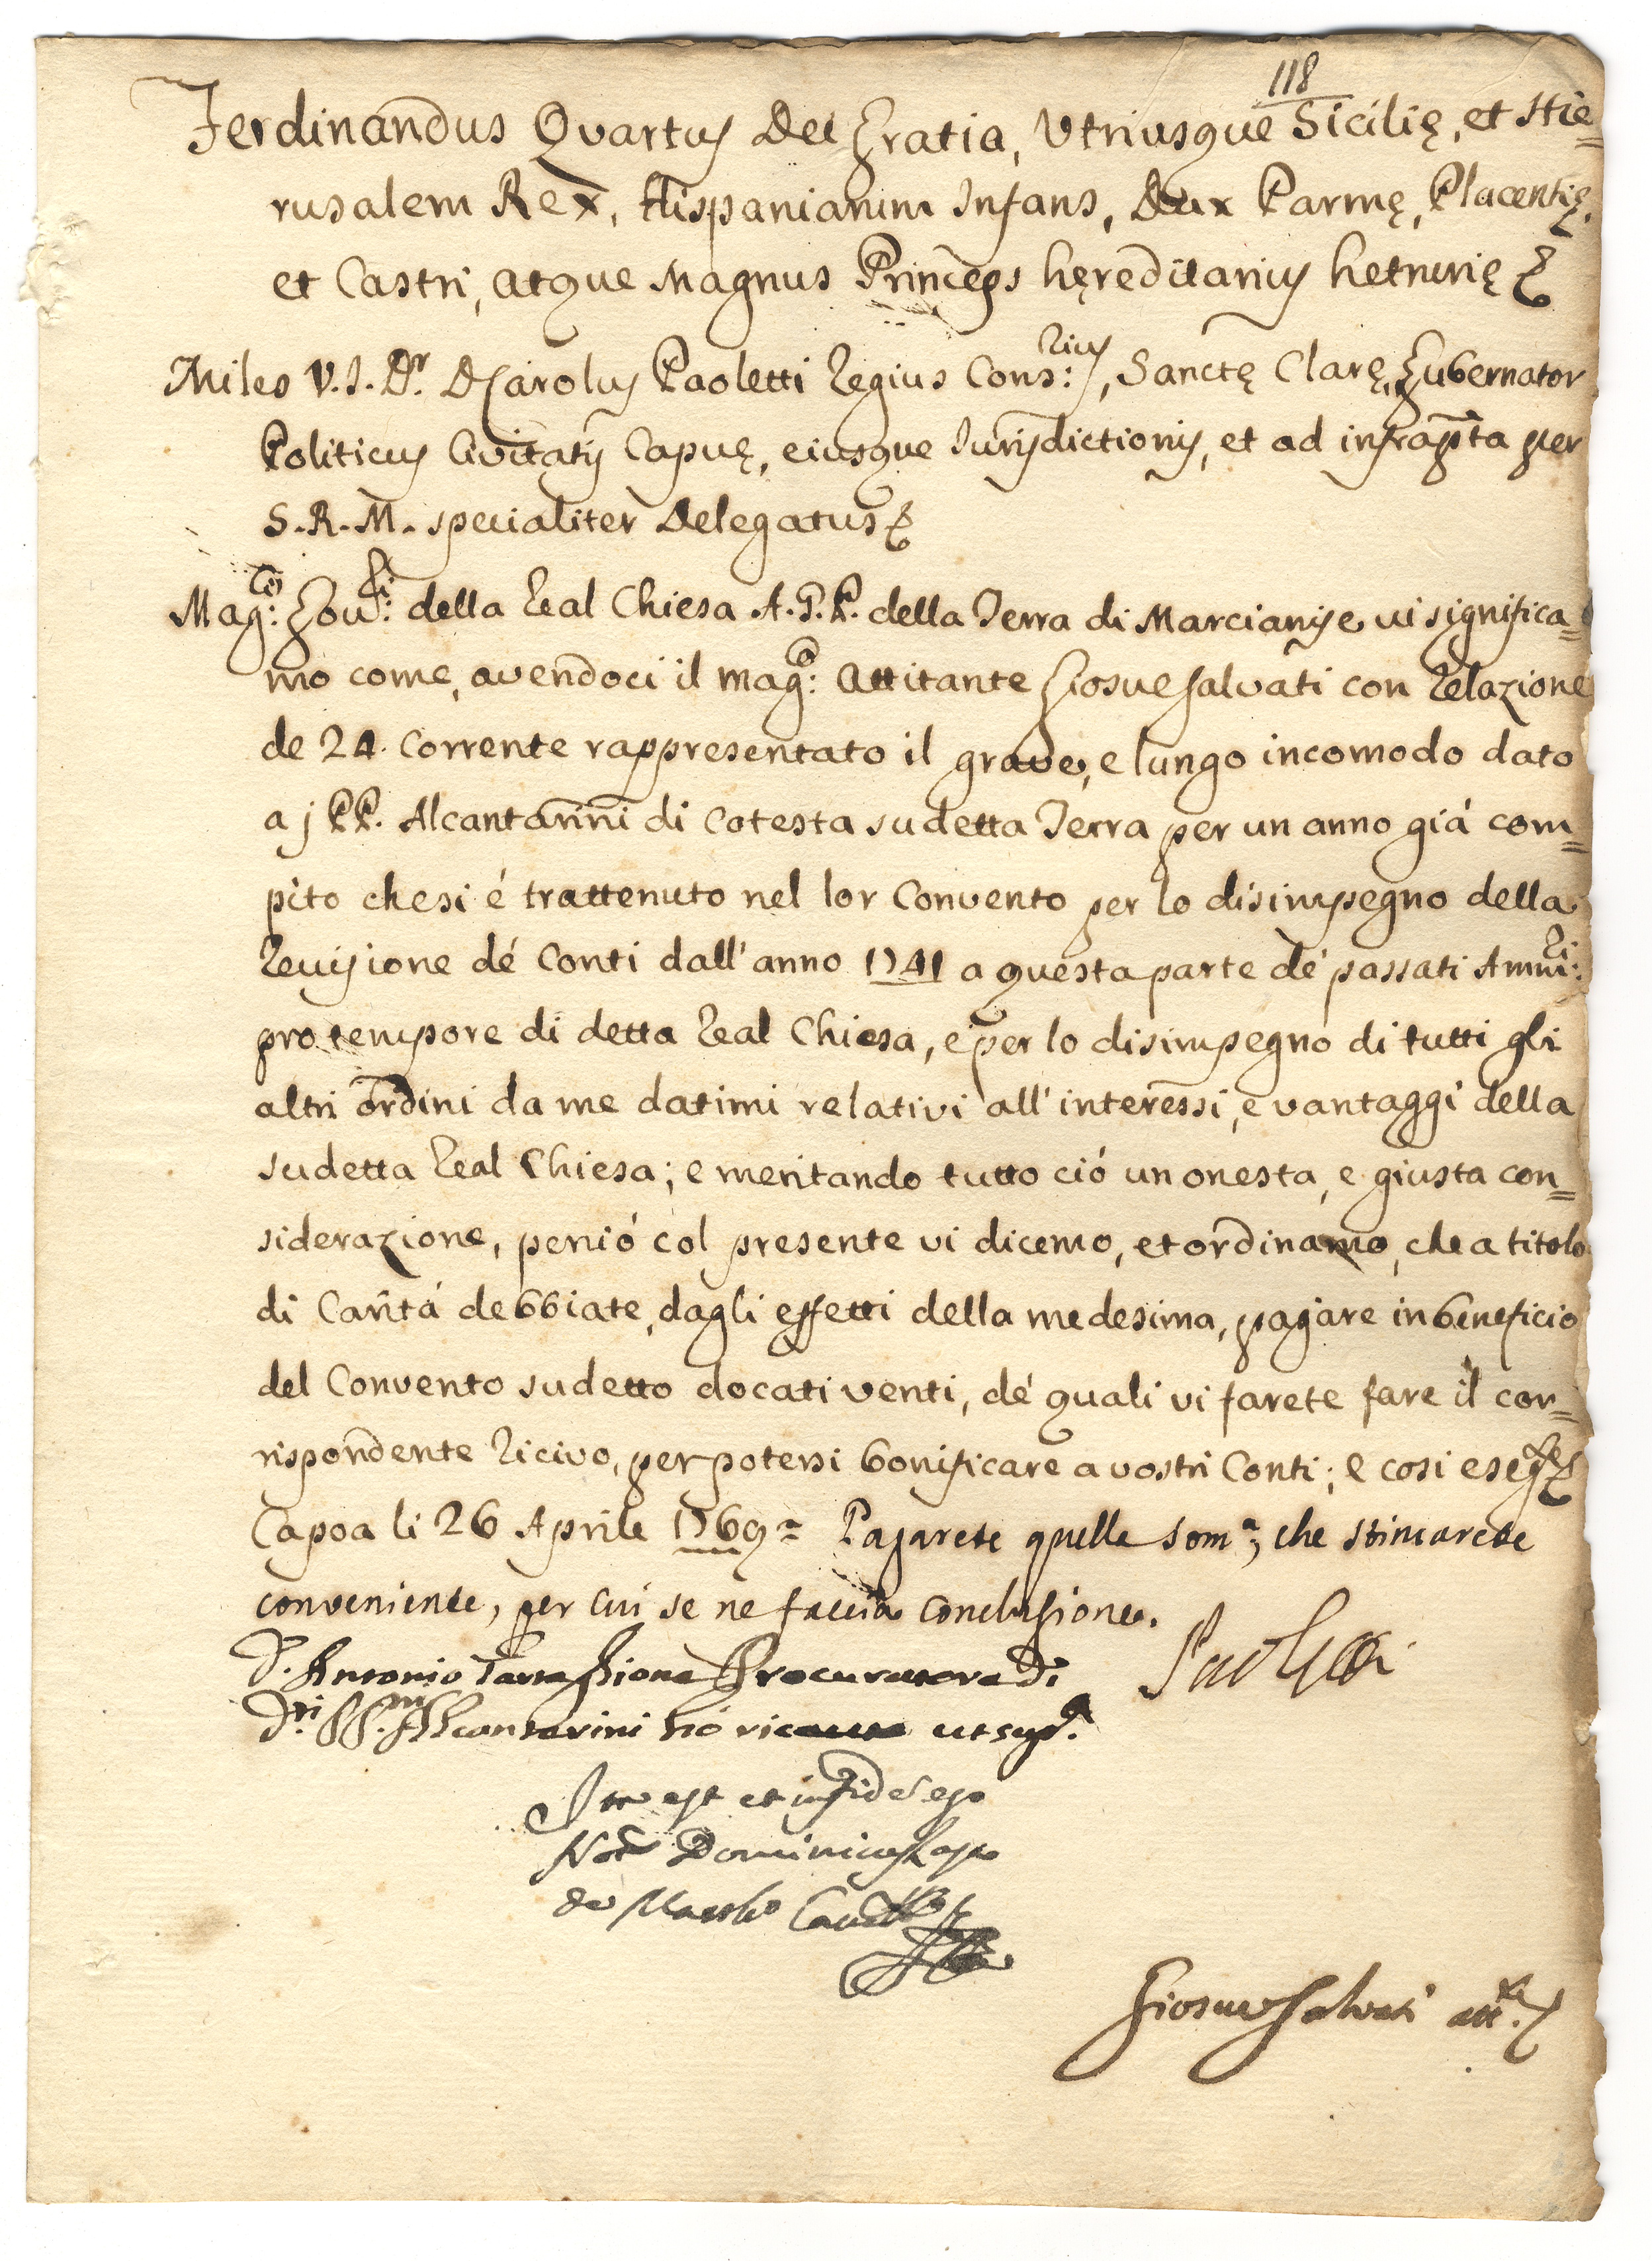 118
Ferdinandus Quartus Dei Gratia, Utriusque Sicilię, et Hie=
rusalem Rex, Hispaniarum Infans, Dux Parmę, Placentię,
et Castri, atque Magnus Princeps hęreditarius hetrurię
Miles V.I.Dr. D. Carolus Paoletti Regius Cons:rius, Sanctę Clarę, Gubernator
Politicus Civitatis Capuę, eiusque Jurisdictionis, et ad infrapta per
S.R.M. specialiter Delegatus
Mag:ci Gov:ri della Real Chiesa A.G.P. della Terra di Marcianise vi significa=
mo come, avendoci il mag:co Attitante Giosue Salvati con Relazione
de 24. Corrente rappresentato il grave, e lungo incomodo dato
a j PP. Alcantarini di Cotesta sudetta Terra per un anno giá com=
pito che si é trattenuto nel lor Convento per lo disimpegno della
Revisione dé Conti dall'anno 1741 a questa parte dé passati Amm:ri
pro tempore di detta Real Chiesa, e per lo disimpegno di tutti gli
altri ordini da me datimi relativi all'interessi, e vantaggi della
sudetta Real Chiesa; e meritando tutto ció un onesta, e giusta con=
siderazione, perció col presente vi dicemo, et ordinamo, che a titolo
di Caritá debbiate, dagli effetti della medesima, pagare in beneficio
del Convento sudetto docati venti, dé quali vi farete fare il cor=
rispondente Ricivo, per potersi bonificare a vostri Conti; e cosi eseg.te
Capoa li 26 Aprile 1769= Pagarete quella som.a, che stimarete
conveniente, per cui se ne faccia conclusione.
Paoletti
D. Antonio Procuratore di
D.ti PP. Alcantarini hó ricevuto ut sup.a
Ita est et in fidem ego
Not. Dominicus
de
Giosue Salvati att.te